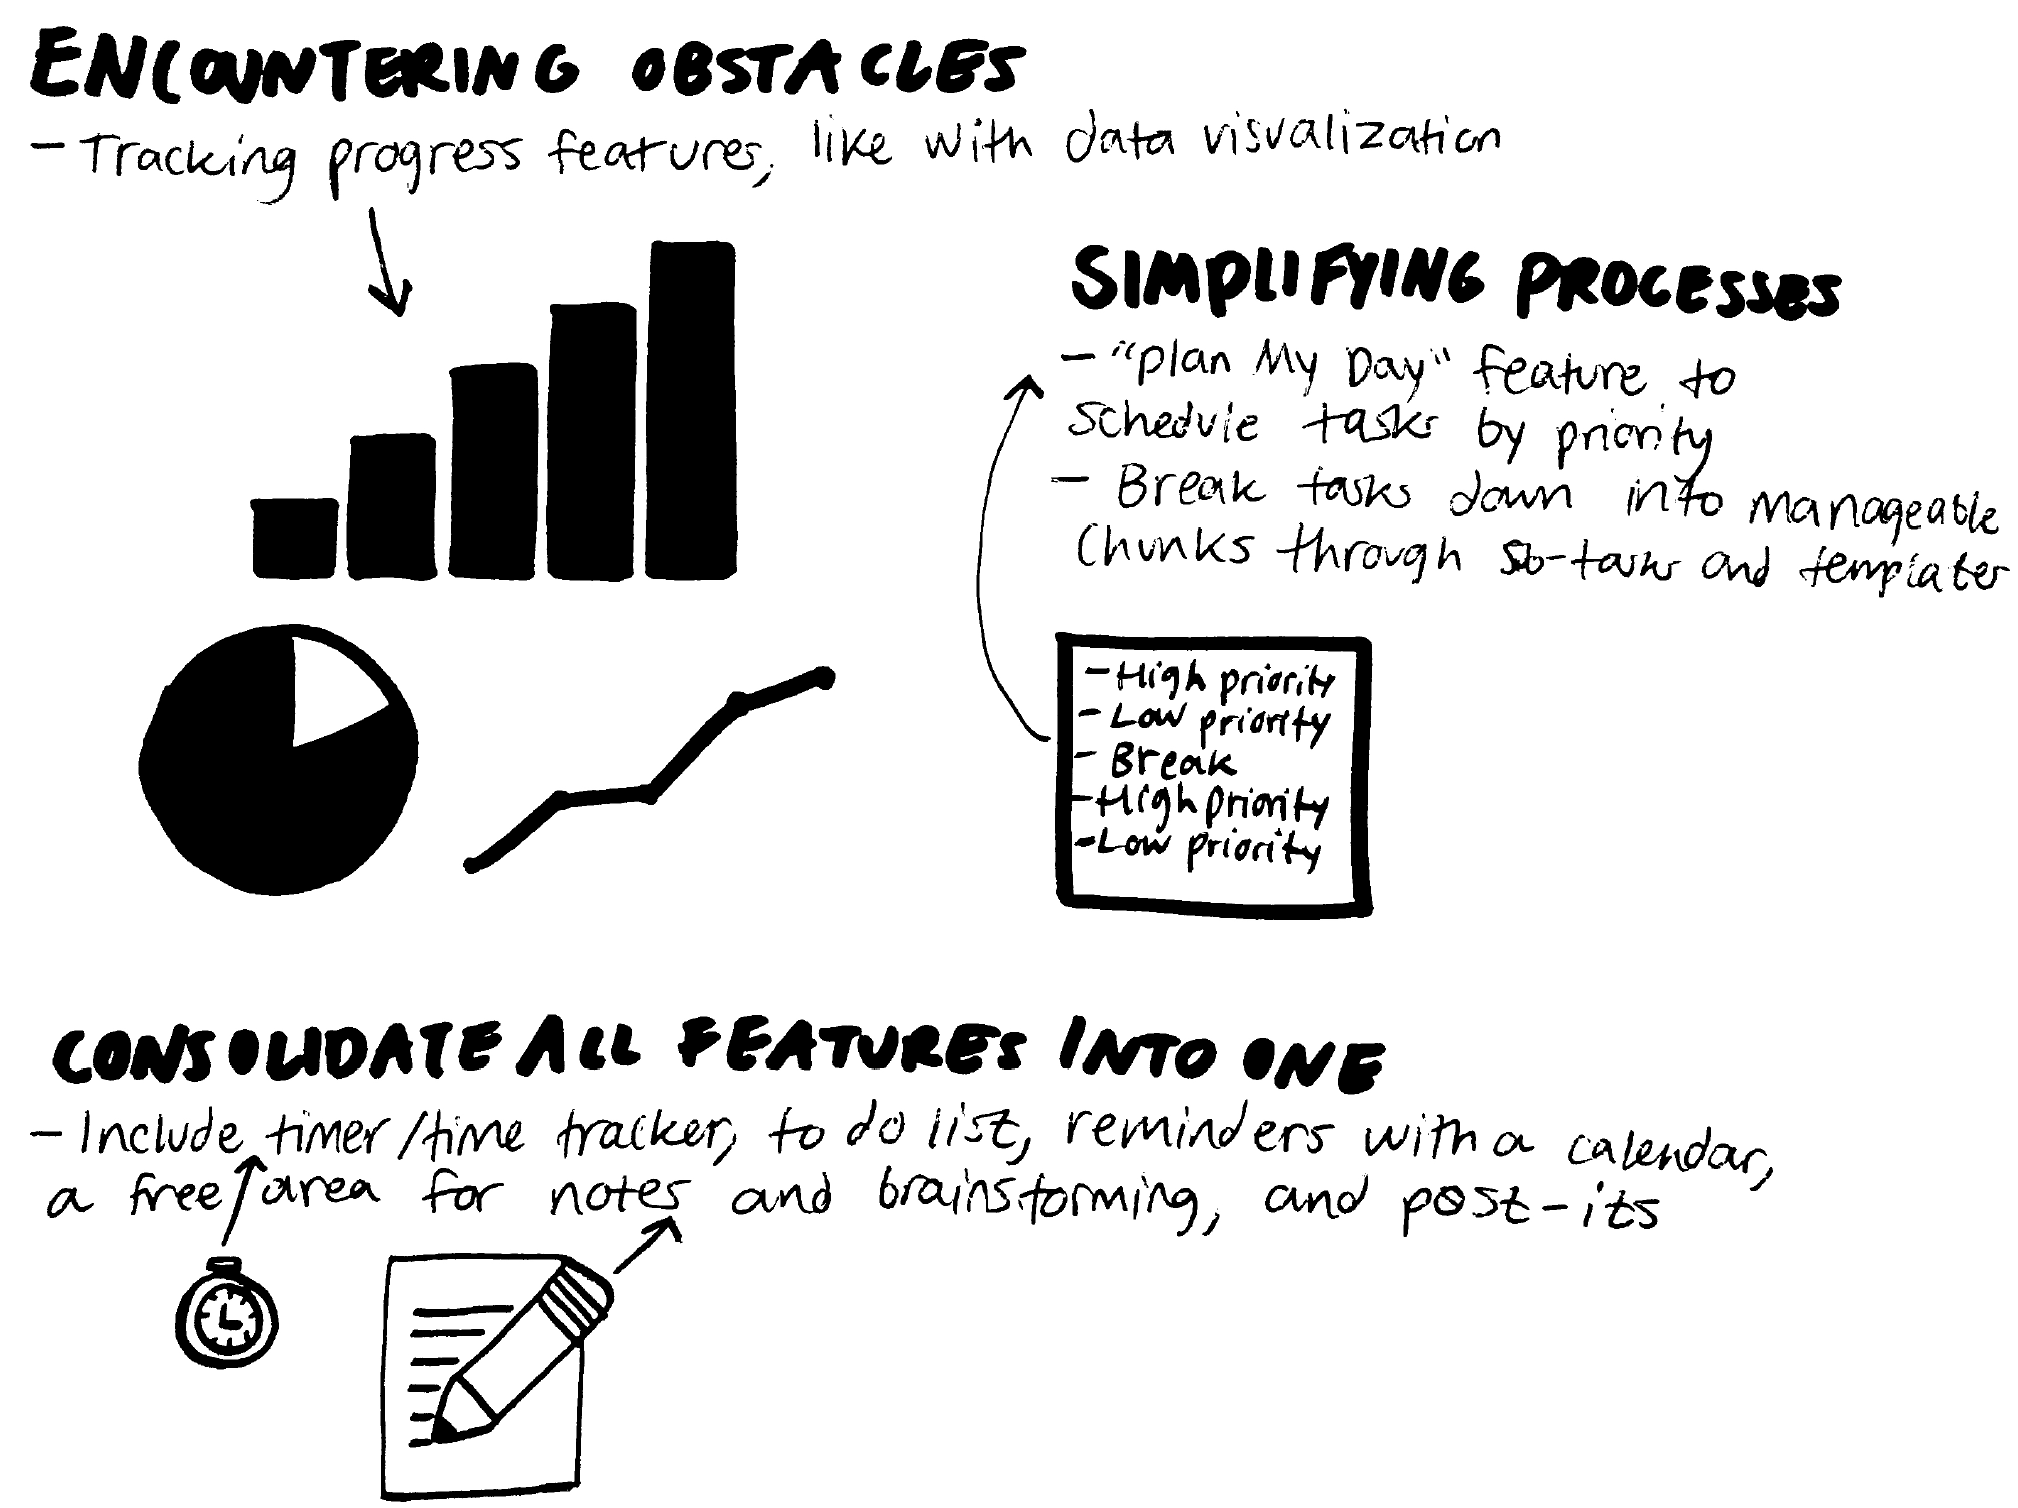 ENCOUNTERING OBSTACLES
- Tracking progress features, like with data visualization
SIMPLIFYING PROCESSES
- "Plan My Day" feature to
schedule tasks by priority
- Break tasks down into manageable
chunks through sub-tasks and templates
- High priority
- Low priority
- Break
- High priority
- Low priority
CONSOLIDATE ALL FEATURES INTO ONE
- Include timer/time tracker, to do list, reminders with a calendar,
a free area for notes and brainstorming, and post-its